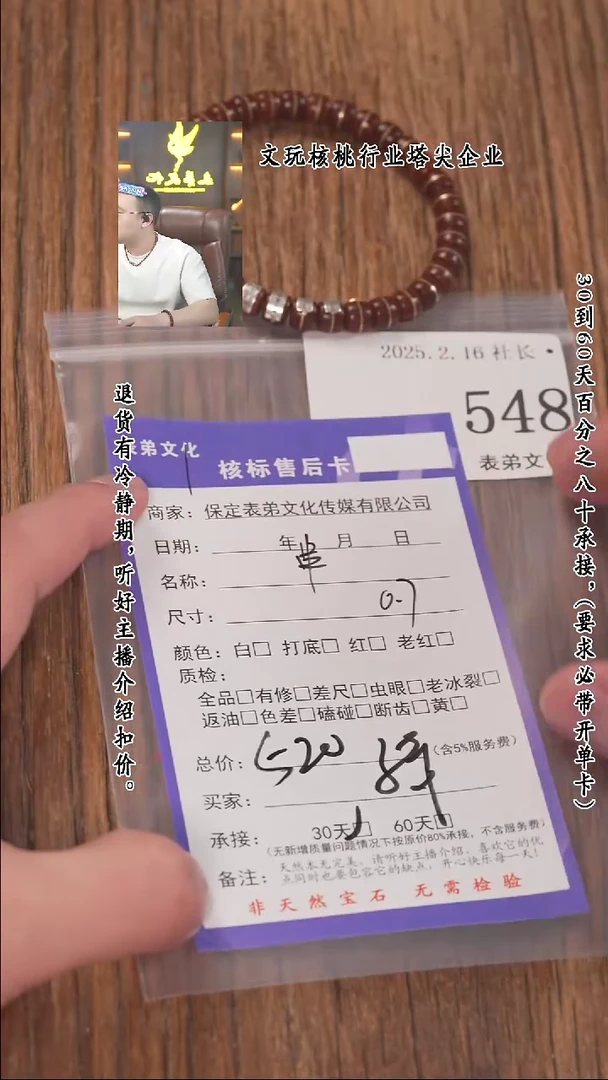 文玩核桃行业塔尖企业
30到60天百分之八十承接，（要求必带开单卡）
退货有冷静期，听好主播介绍扣价。
2025.2.16 社长·
548
表弟文
表弟文化
核标售后卡
商家：保定表弟文化传媒有限公司
日期：年 月 日
串
名称：
尺寸：0.7
颜色：白□ 打底□ 红□ 老红□
质检：
全品□有修□差尺□虫眼□老冰裂□
返油□色差□磕碰□断齿□黄□
总价：520 （含5%服务费）
买家：
承接：30天□ 60天□
（无新增质量问题情况下按原价80%承接，不含服务费）
备注：天然本无完美，请听好主播介绍、喜欢它的优
点同时也要包容它的缺点，开心快乐每一天！
非天然宝石 无需检验